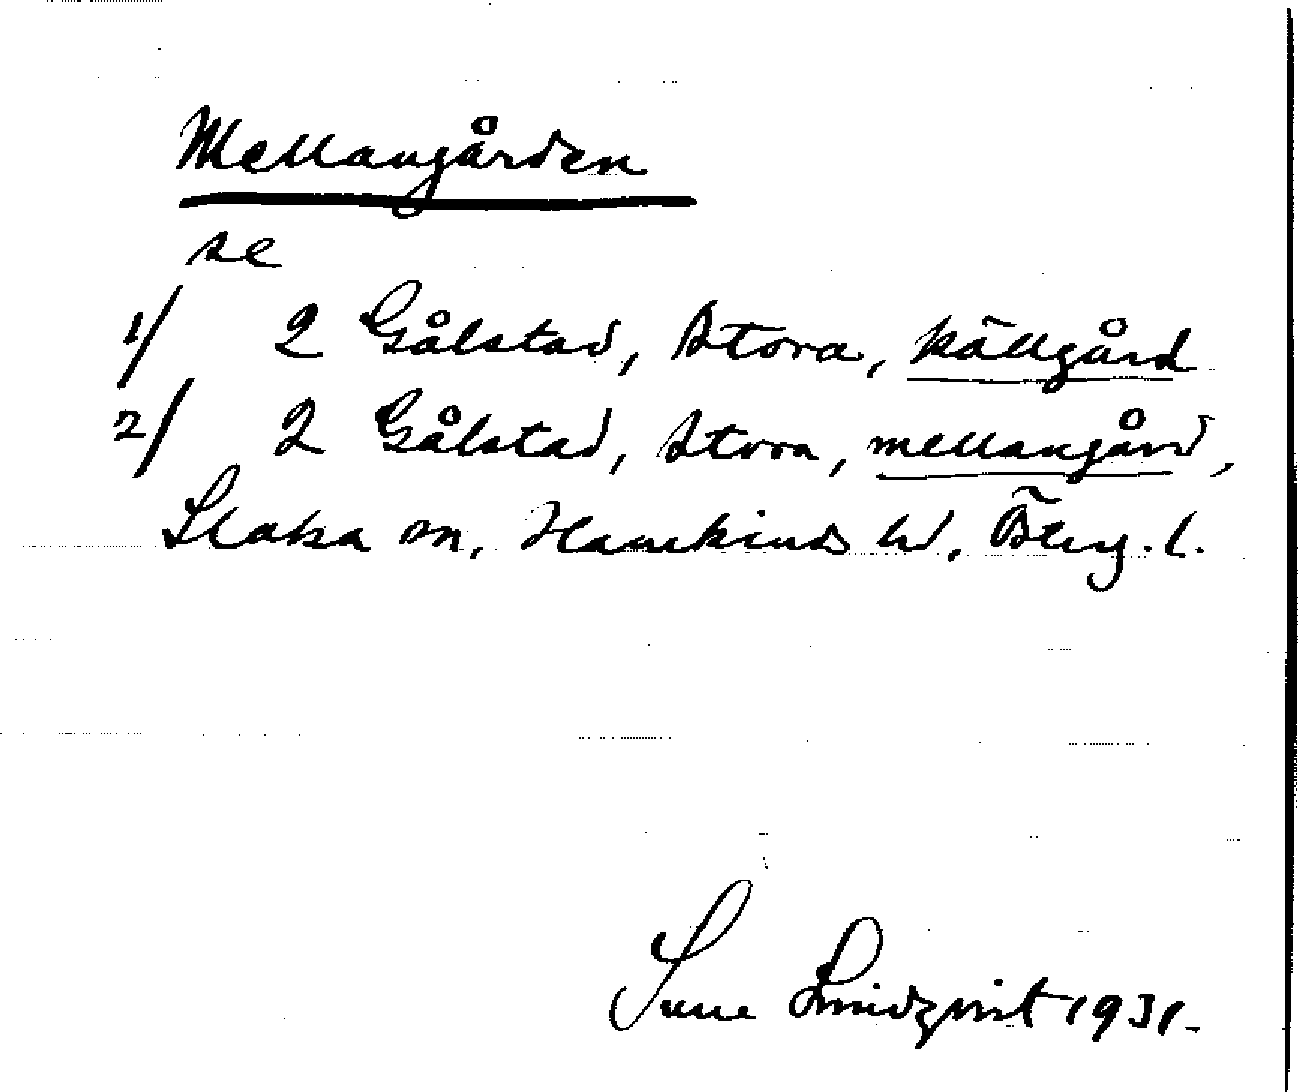 Mellangården
se
1/ 2 Gålstad, Stora, källgård
2/ 2 Gålstad, Stora, mellangård,
Slaka sn, Hanekinds hd, Östg. l.
Sune Lindqvist 1931.